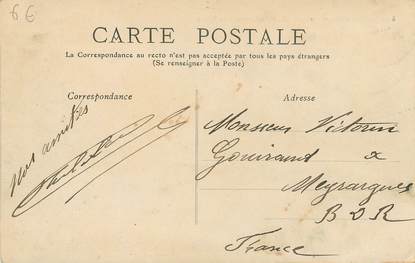 6€
CARTE POSTALE
La Correspondance au recto n'est pas acceptée par tous les pays étrangers
(Se renseigner à la Poste)
Correspondance
Nos amitiés
Adresse
Monsieur Victorin
Gouirant
Meyrargues
B D R
France